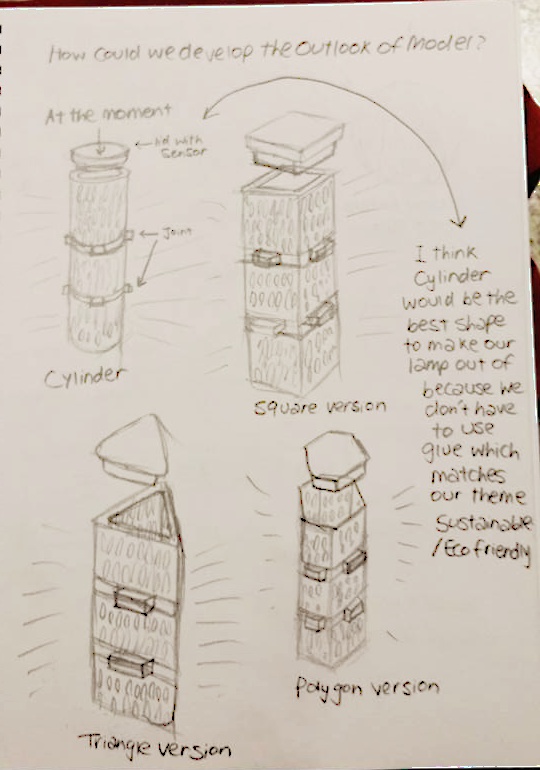 How could we develop the Outlook of Model?
At the moment
lid with
sensor
Joint
Cylinder
Square version
I think
Cylinder
would be the
best shape
to make our
lamp out of
because we
don't have
to use
glue which
matches
our theme
Sustainable
/Eco friendly
Triangle version
Polygon version